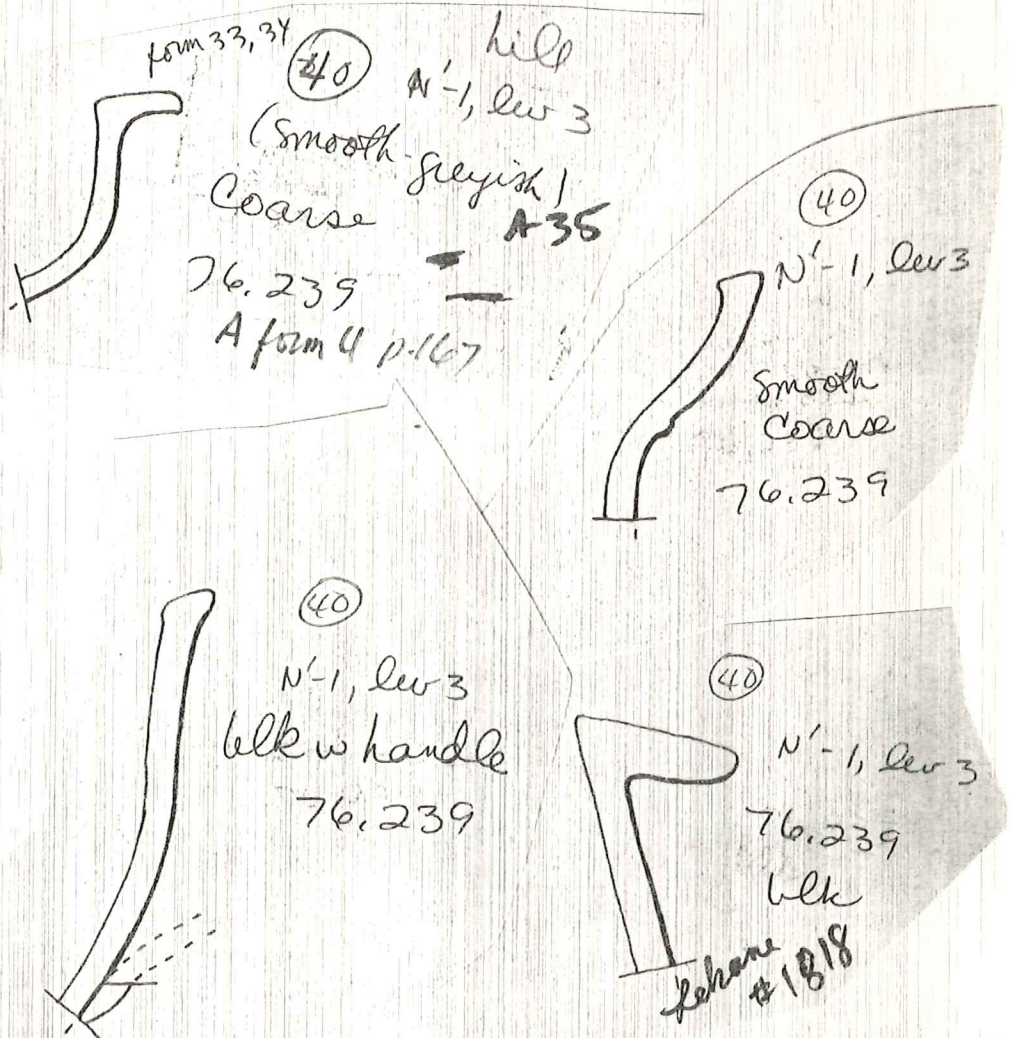 form 33, 34
40
hill
N'-1, lev 3
(smooth-greyish)
Coarse
A 35
76.239
A form 4 p.167
40
N'-1, lev 3
Smooth
Coarse
76.239
40
N'-1, lev 3
blk w handle
76.239
40
N'-1, lev 3
76.239
blk
#1818